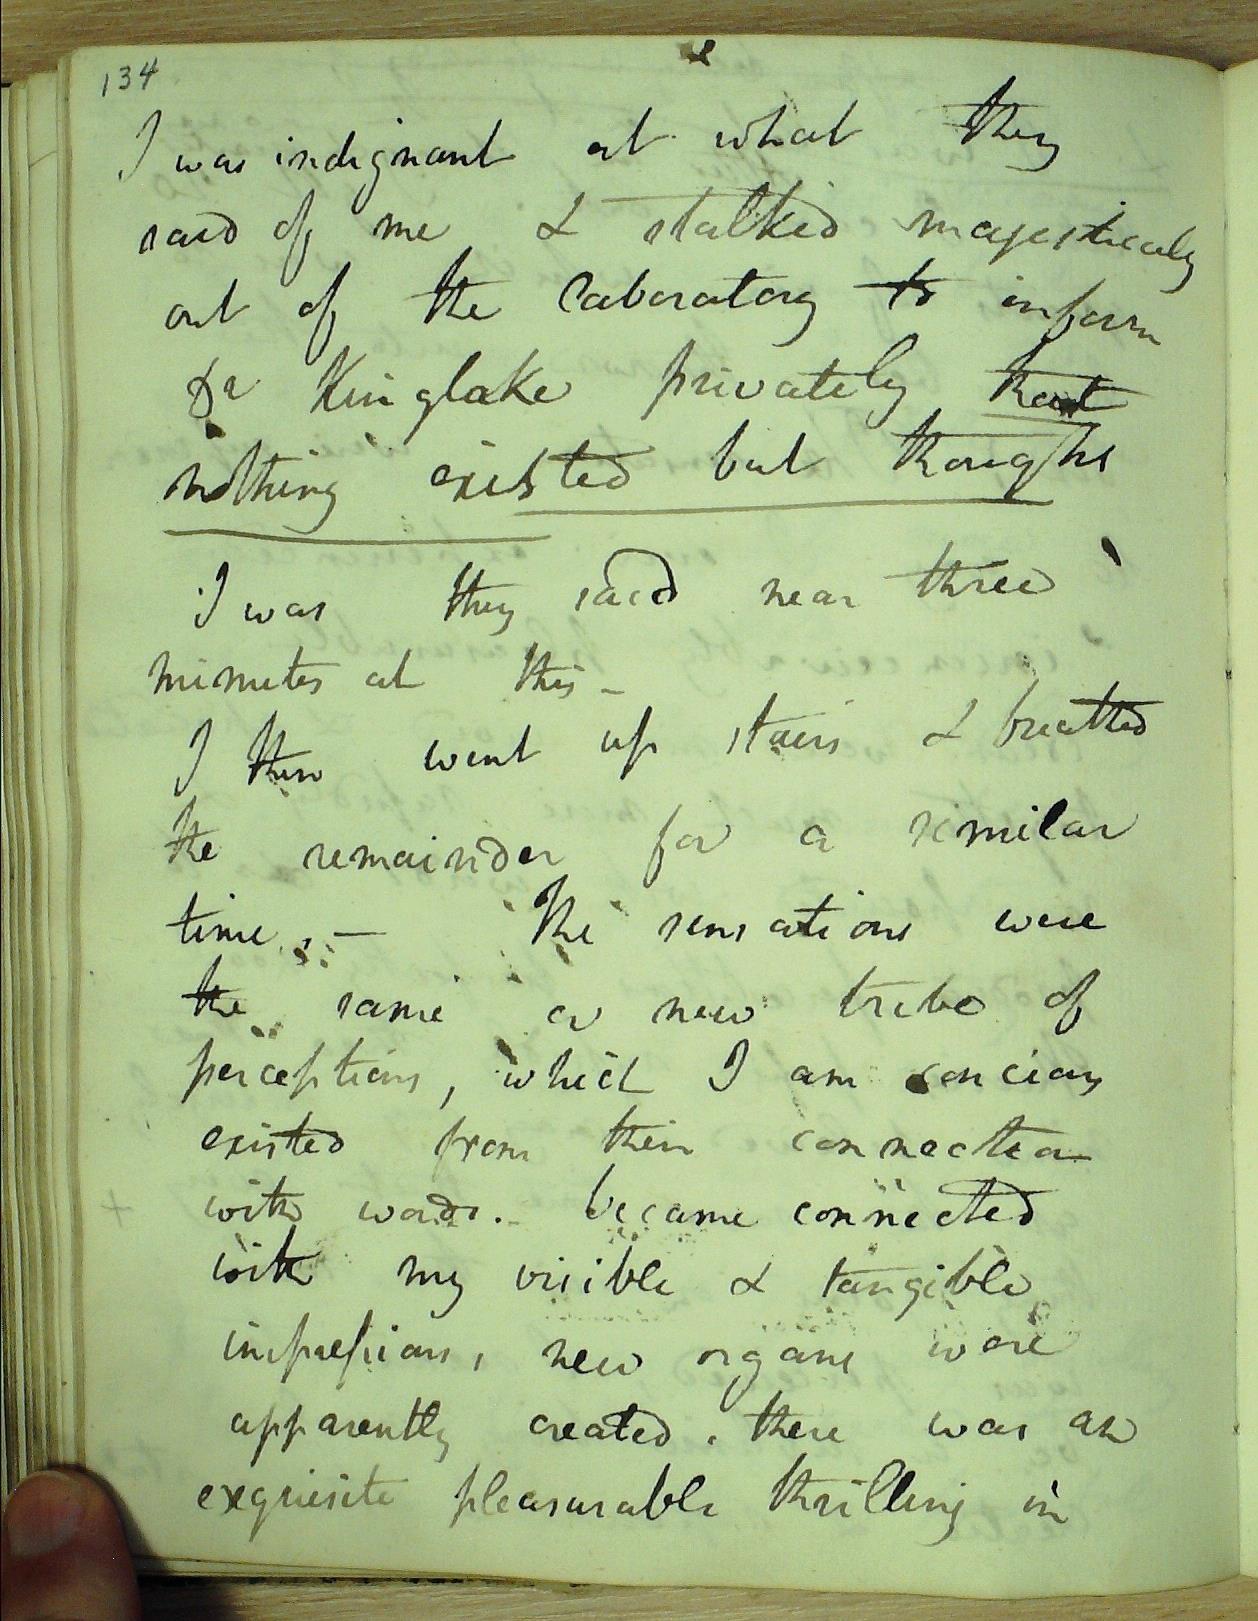 134
I was indignant at what they
said of me & stalked majestically
out of the laboratory to inform
Dr Kinglake privately that
nothing existed but thoughts
I was they said near three
minutes at this –
I then went up stairs & breathed
the remainder for a similar
time. – The sensations were
the same a new tribe of
perceptions, which I am concious
existed from their connection
with words. became connected
with my visible & tangible
impressions, new organs were
apparently created. there was an
exquisite pleasurable thrilling in